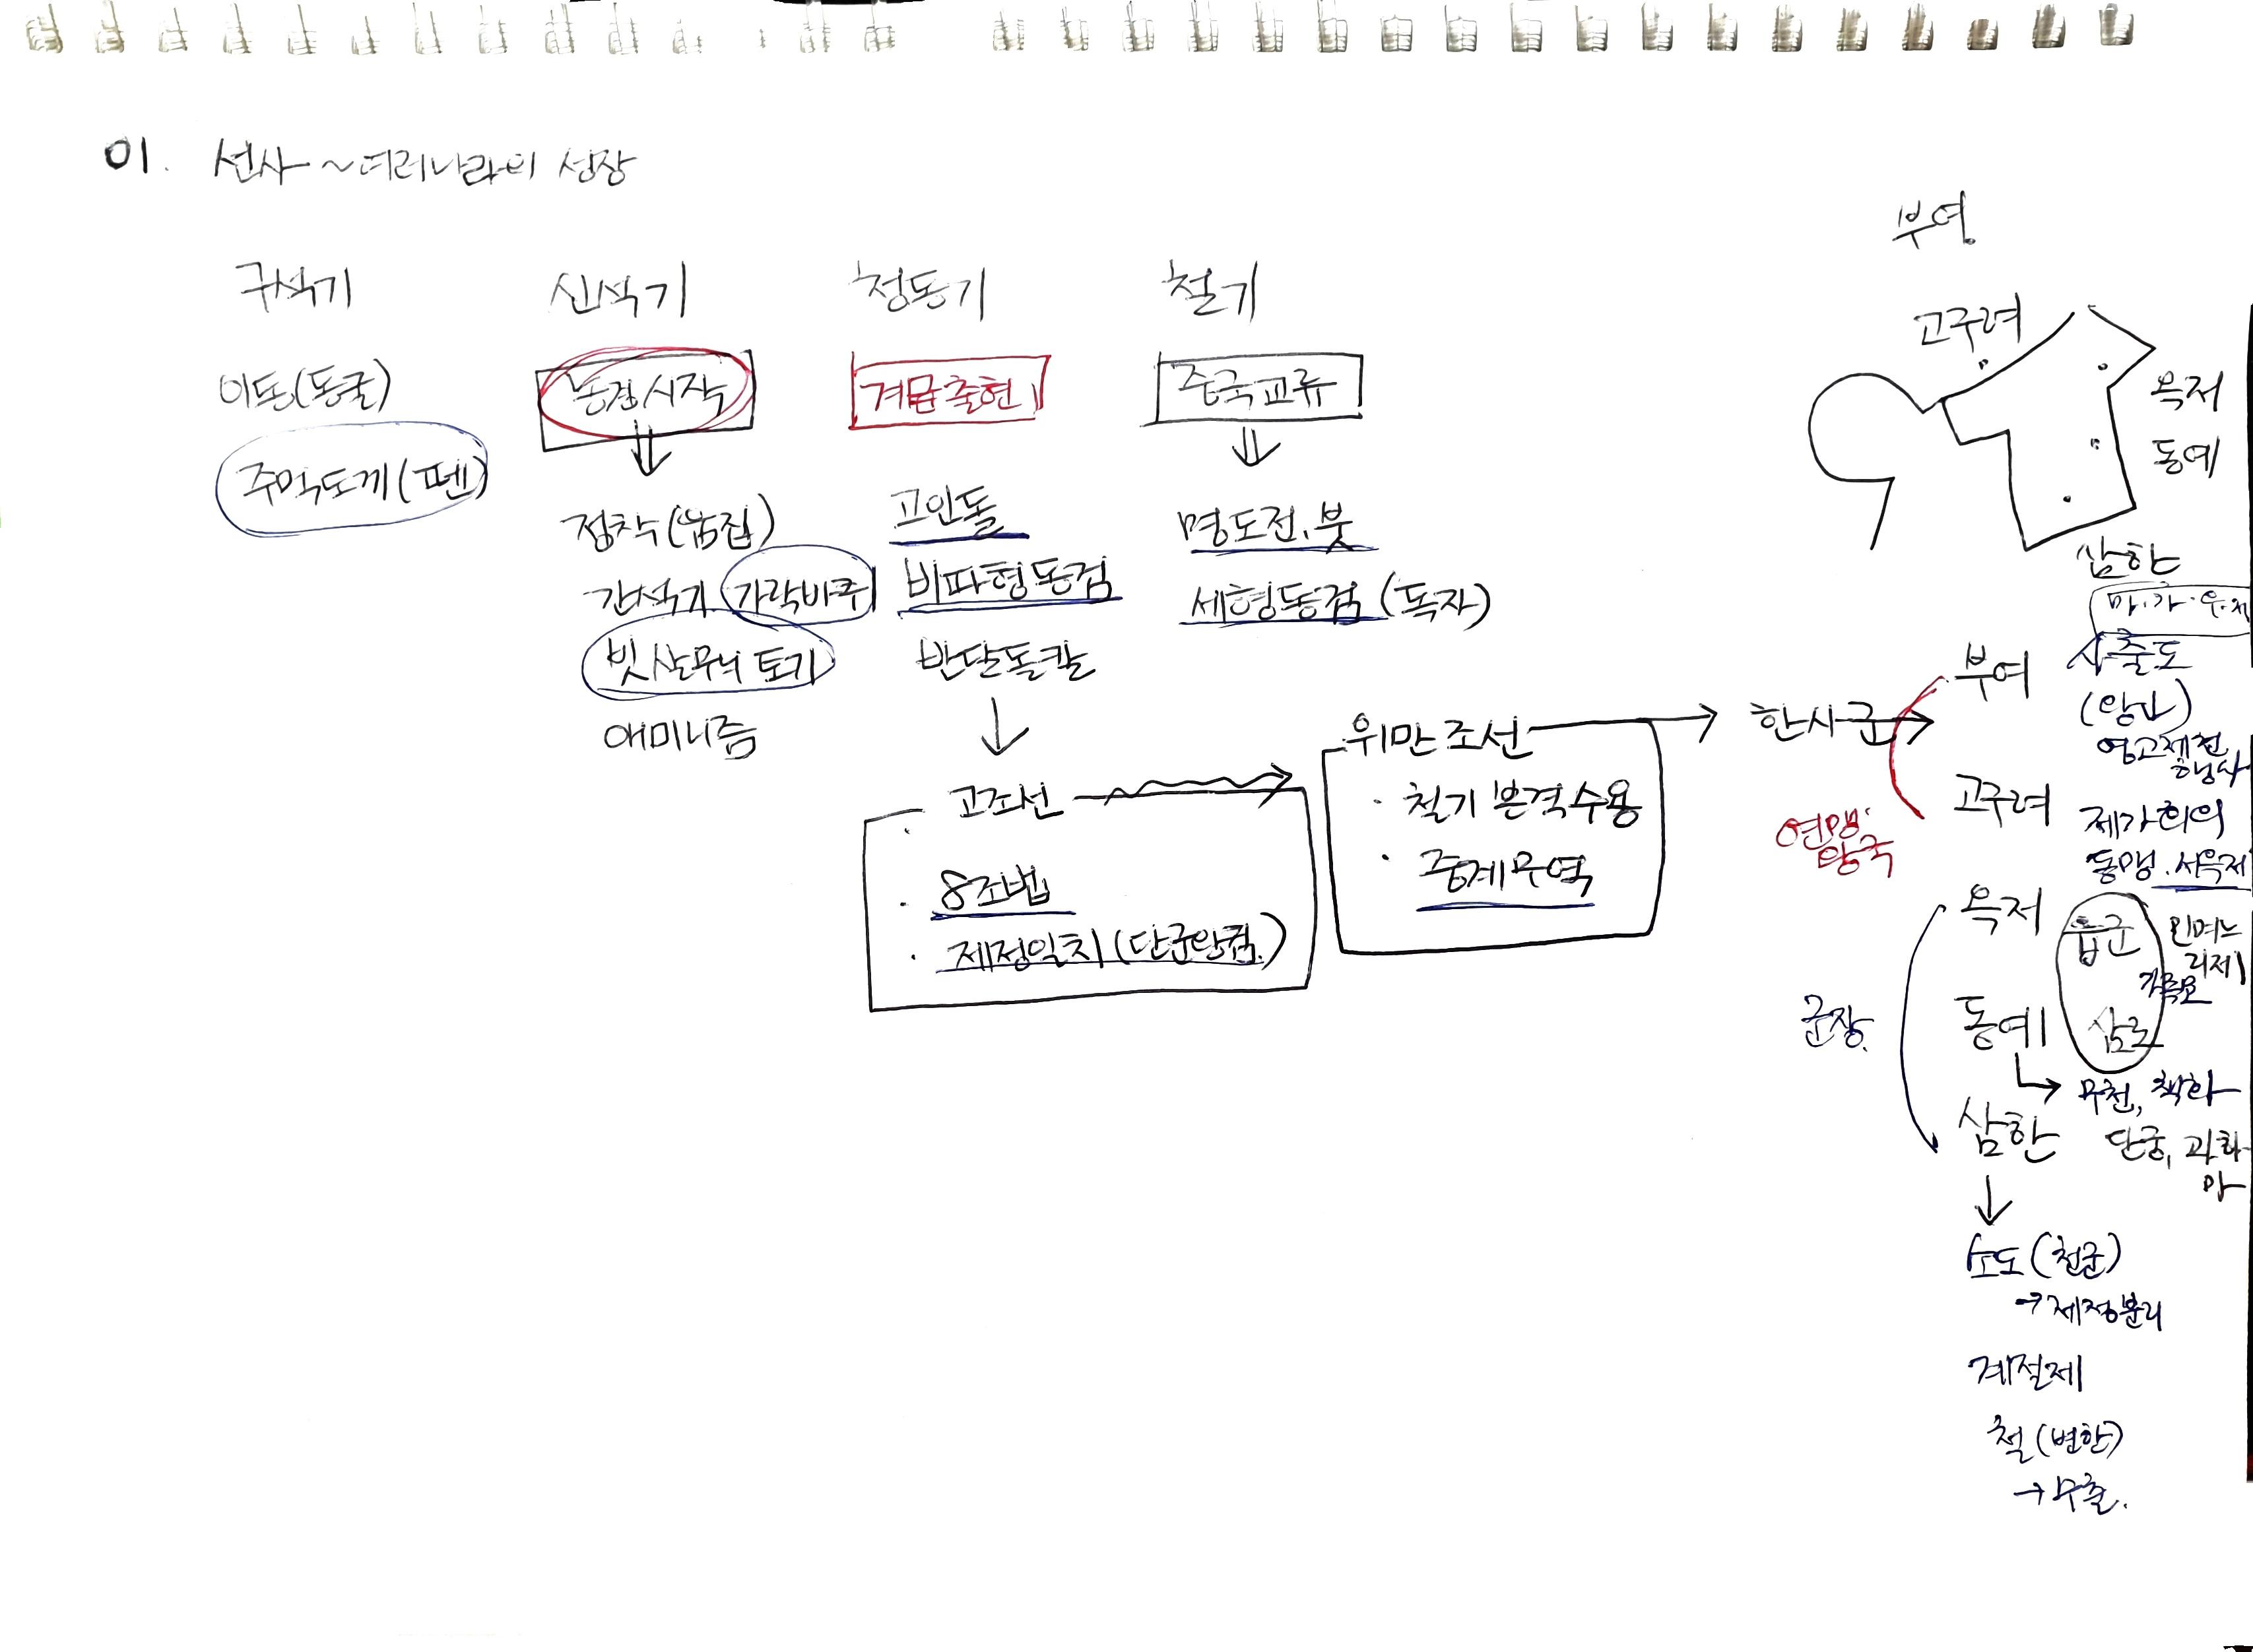 01. 선사 ~ 여러나라의 성장
구석기
이동(동굴)
주먹도끼(뗀)
신석기
농경시작
정착(움집)
간석기 가락바퀴
빗살무늬 토기
애미니즘
청동기
계급출현
고인돌
비파형동검
반달돌칼
고조선
· 8조법
· 제정일치(단군왕검.)
철기
중국교류
명도전.붓
세형동검(독자)
위만조선
· 철기 본격수용
· 중계무역
한사군
부여
고구려
옥저
동예
삼한
마.가.우.저
연맹
왕국
부여
사출도
(왕X)
영고제천
행사
고구려
제가회의
동맹.서옥제
군장.
옥저
읍군
민며느
리제
가족묘
동예
삼로
무천, 책화
단궁, 과하
마
삼한
소도(천군)
→제정분리
계절제
철(변한)
→수출.